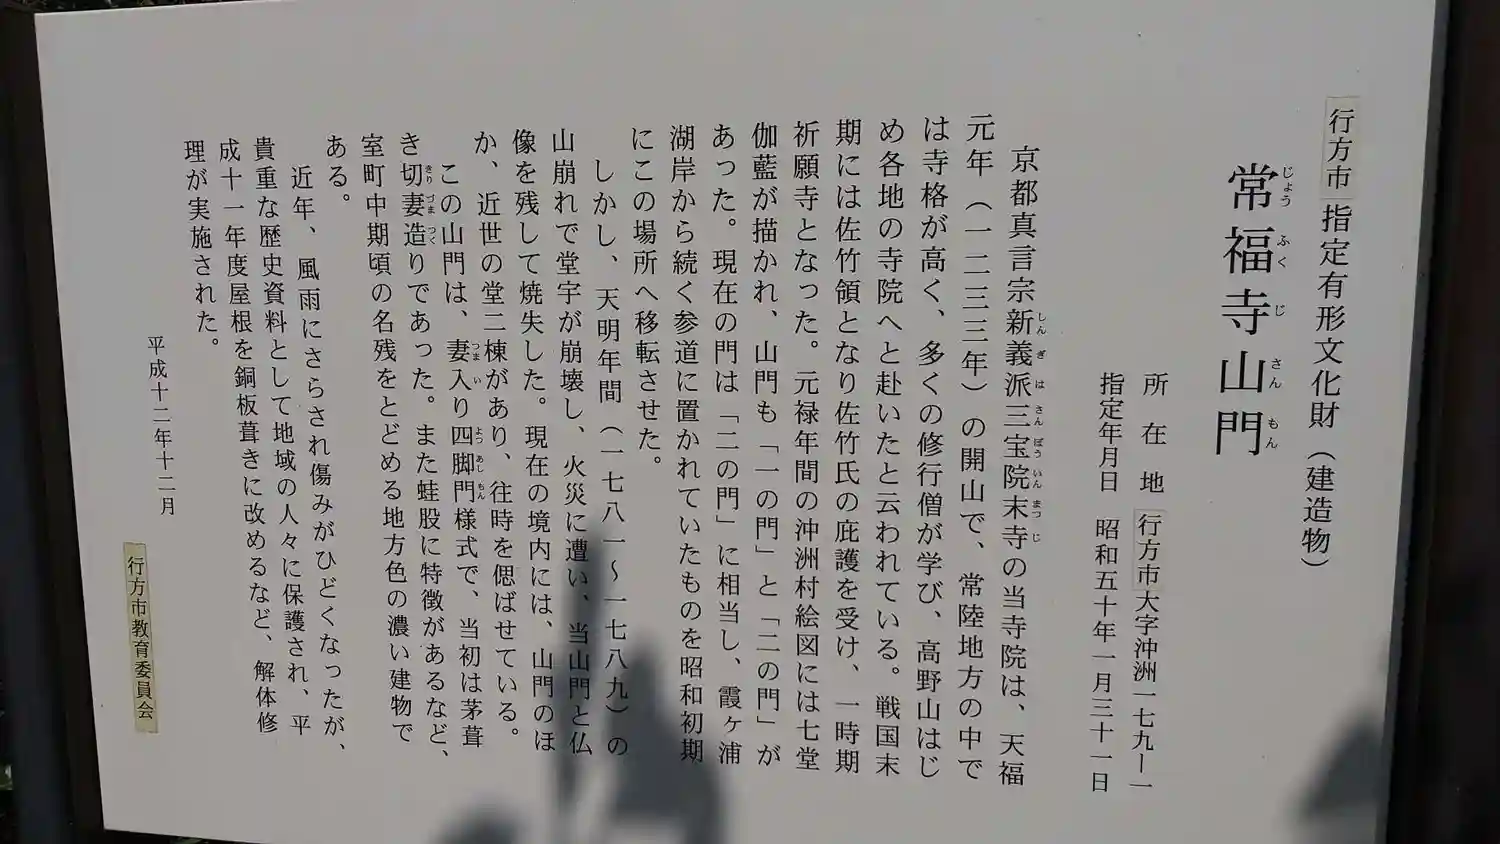 行方市指定有形文化財（建造物）
常福寺山門
じょうふくじさんもん
所在地 行方市大字沖洲一七九ー一
指定年月日 昭和五十年一月三十一日
京都真言宗新義派三宝院末寺の当寺院は、天福
しんぎはさんぼういんまつじ
元年（一二三三年）の開山で、常陸地方の中で
は寺格が高く、多くの修行僧が学び、高野山はじ
め各地の寺院へと赴いたと云われている。戦国末
期には佐竹領となり佐竹氏の庇護を受け、一時期
祈願寺となった。元禄年間の沖洲村絵図には七堂
伽藍が描かれ、山門も「一の門」と「二の門」が
あった。現在の門は「二の門」に相当し、霞ヶ浦
湖岸から続く参道に置かれていたものを昭和初期
にこの場所へ移転させた。
しかし、天明年間（一七八一～一七八九）の
山崩れで堂宇が崩壊し、火災に遭い、当山門と仏
像を残して焼失した。現在の境内には、山門のほ
か、近世の堂二棟があり、往時を偲ばせている。
この山門は、妻入り四脚門様式で、当初は茅葺
つまいよつあしもん
き切妻造りであった。また蛙股に特徴があるなど、
きりづまつく
室町中期頃の名残をとどめる地方色の濃い建物で
ある。
近年、風雨にさらされ傷みがひどくなったが、
貴重な歴史資料として地域の人々に保護され、平
成十一年度屋根を銅板葺きに改めるなど、解体修
理が実施された。
平成十二年十二月
行方市教育委員会